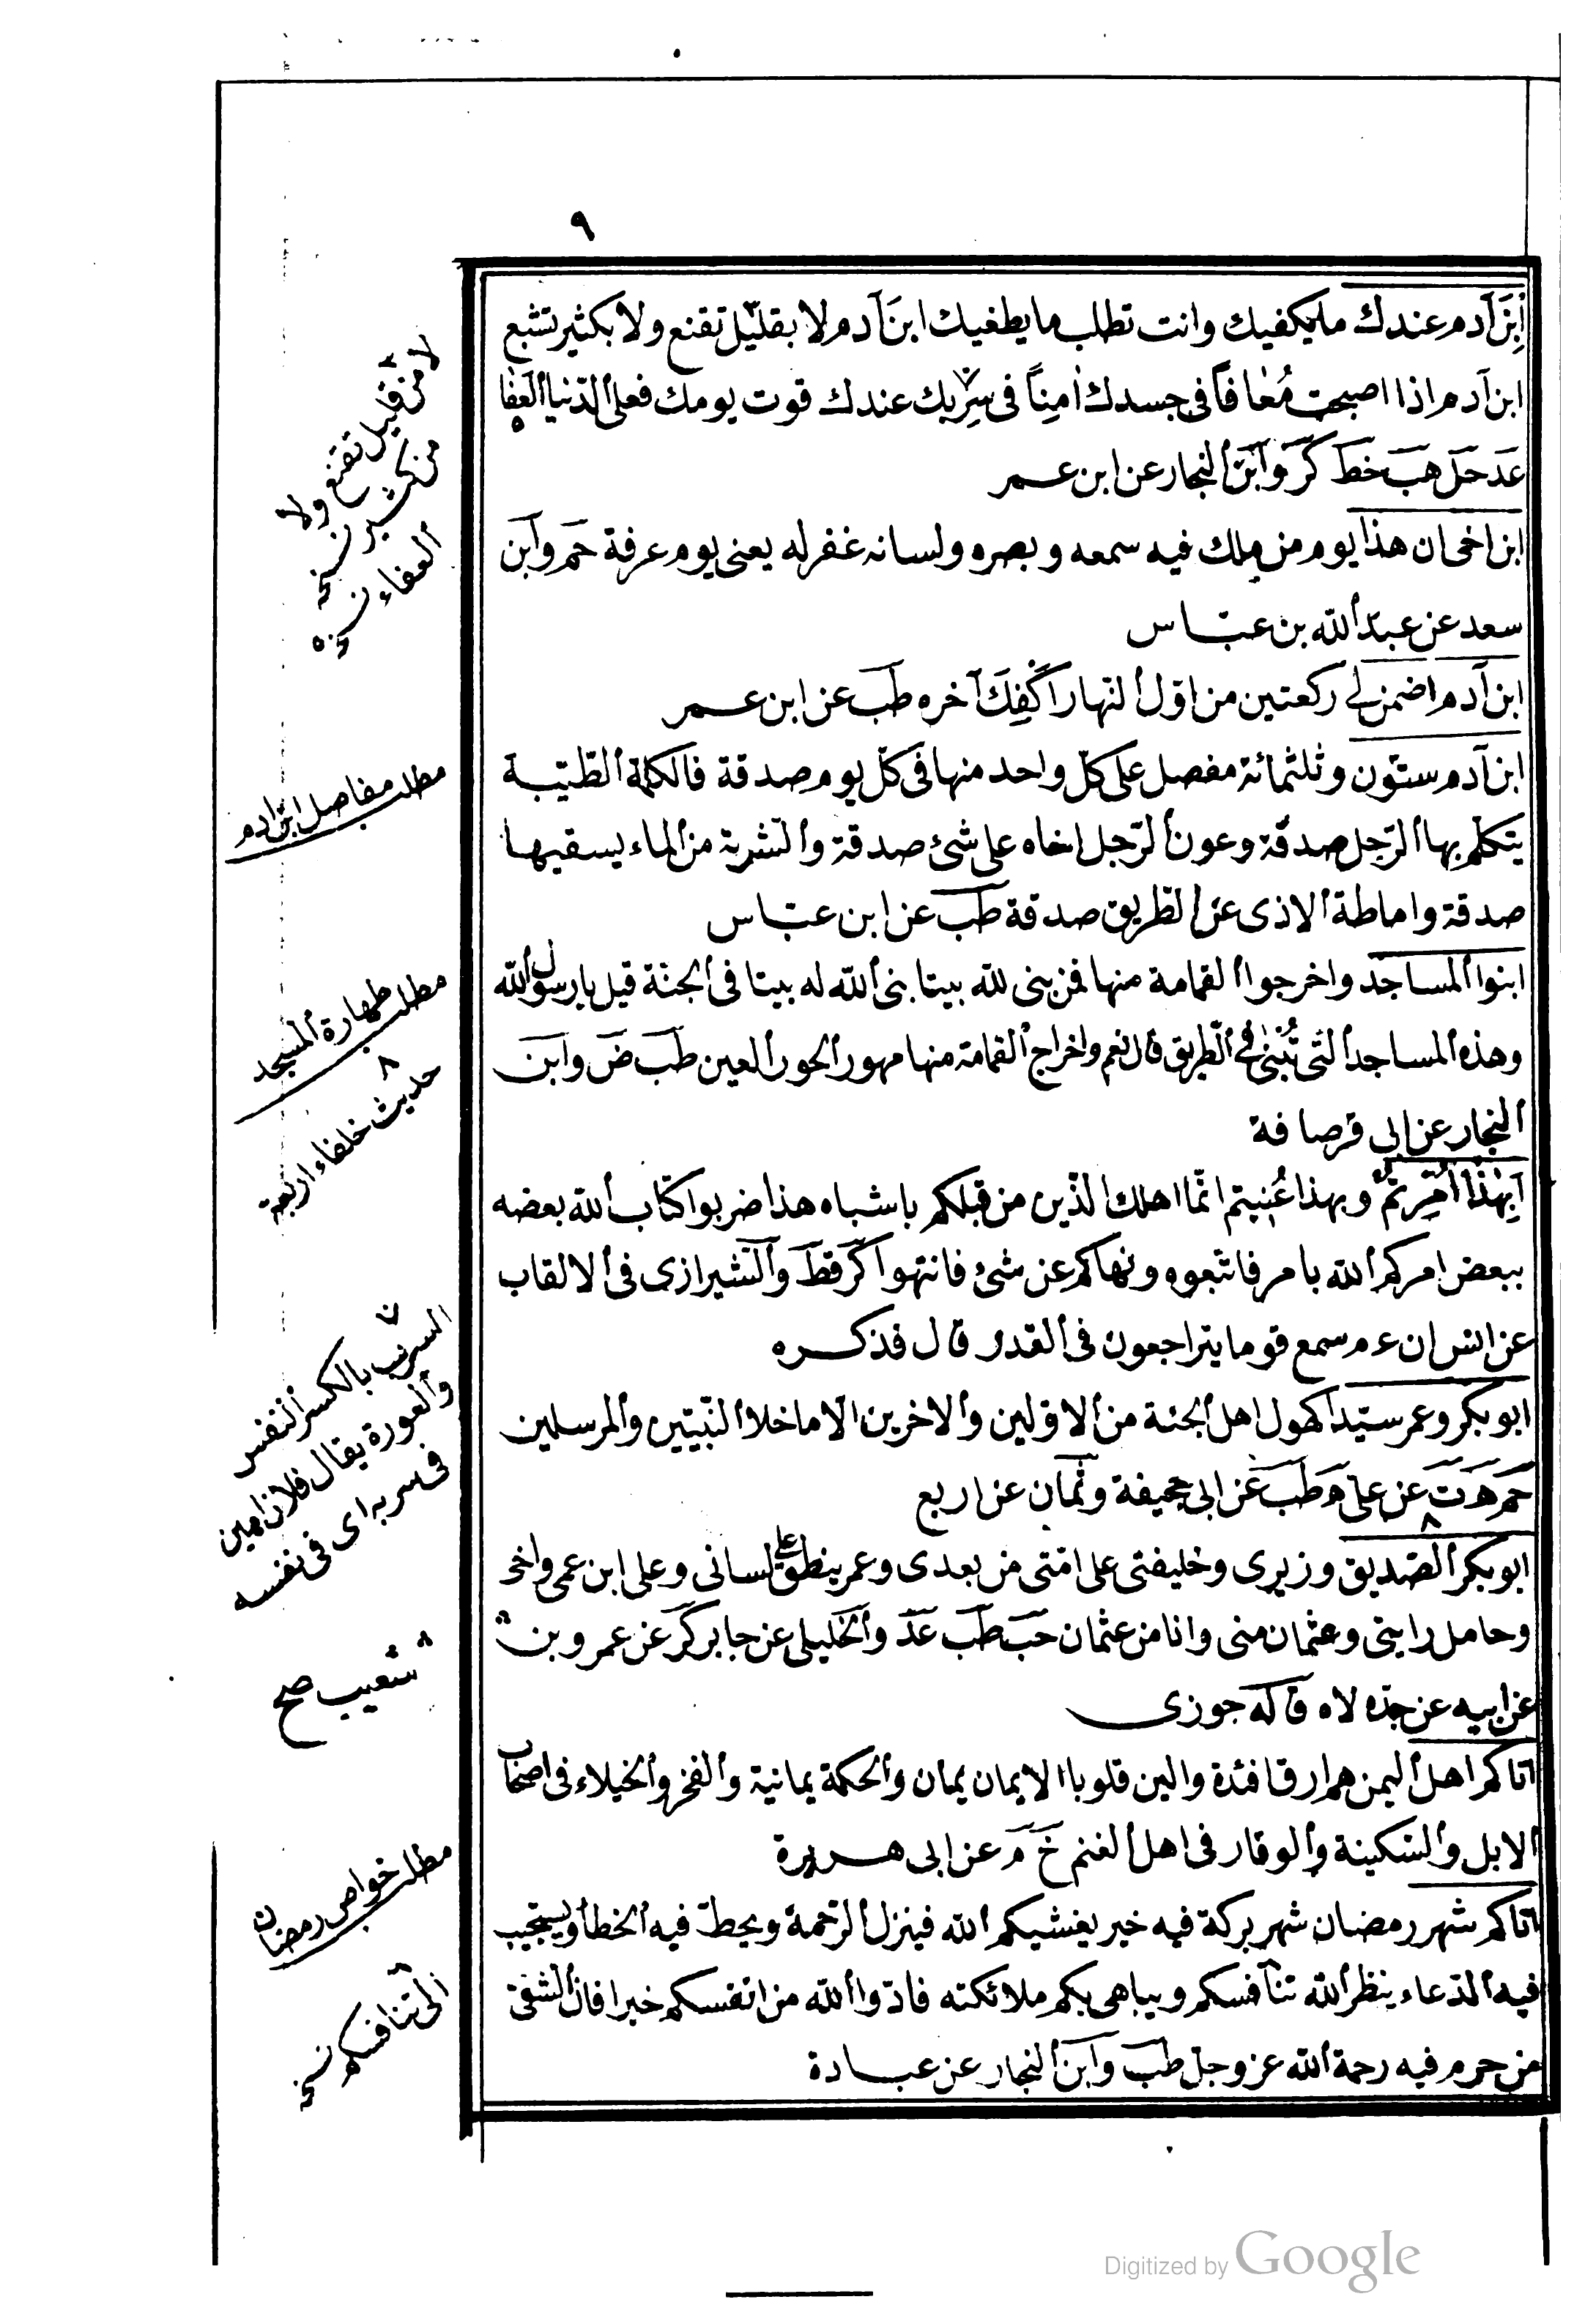 ٩
اِبْنَ آدم عندك ما يكفيك وانت تطلب ما يطغيك ابن آدم لا بقليل تقنع ولا بكثير تشبع
ابن آدم اذا اصبحت مُعافاً فى جسدك اٰمِناً فى سِرْبك عندك قوت يومك فعلى الدّنيا العفا
عَد حَل هَب خَط كَر وابن النجار عن ابن عـمر
ابن اخى ان هذا يوم من ملك فيه سمعه وبصره ولسانه غفر له يعنى يوم عرفة حَم وابن
سعد عن عبد الله بن عبّاس
ابن آدم اضمن لى ركعتين من اوّل النّهار اَكْفِكَ آخره طَب عن ابن عـمر
ابن آدم ستّون وثلثمائة مفصل على كلّ واحد منها فى كلّ يوم صدقة فالكلمة الطّيّبة
يتكلّم بها الرّجل صدقة وعون الرّجل اخاه على شئ صدقة والشربة من الماء يسقيها
صدقة واماطة الاذى عن الطّريق صدقة طَب عن ابن عبّاس
ابنوا المساجد واخرجوا القمامة منها فمن بنى لله بيتا بنى الله له بيتا فى الجنّة قيل يا رسول الله
وهذه المساجد الّتى تُبْنٰى فى الطّريق قال نعم واخراج القمامة منها مهور الحور العين طَب ضَ وابن
النجار عن ابى قرصافة
اَبِهٰذَا اُمِرْتُمْ وبهذا عُنيتم انّما اهلك الّذين من قبلكم باشباه هذا ضربوا كتاب الله بعضه
ببعض امركم الله بامر فاتّبعوه ونهاكم عن شئ فانتهوا كَر قط والشيرازى فى الالقاب
عن انس ان ء م سمع قوما يتراجعون فى القدر قال فذكـره
ابو بكر وعمر سيّدا كهول اهل الجنّة من الاوّلين والاخرين الّا ما خلا النّبيّين والمرسلين
حَم هَ تَ عن على هَ طَب عن ابى جحيفة وثمان عن اربع
ابو بكر الصّديق وزيرى وخليفتى على امّتى من بعدى وعمر ينطق على لسانى وعلى ابن عمى واخى
وحامل رايتى وعثمان منى وانا من عثمان حَب طَب عَد والخليلى عن جابر كَر عن عمرو بن
عن ابيه عن جدّه لاه قاله جوزى
اتاكم اهل اليمن هم ارق افئدة والين قلوبا الايمان يمان والحكمة يمانية والفخر والخيلاء فى اصحاب
الابل والسّكينة والوقار فى اهل الغنم خَ مَ عن ابى هـريرة
اتاكم شهر رمضان شهر بركة فيه خير يغشيكم الله فينزل الرّحمة ويحطّ فيه الخطأ ويستجيب
فيه الدّعاء ينظر الله تنافسكم ويباهى بكم ملائكته فادّوا الله من انفسكم خيرا فان الشقىّ
من حرم فيه رحمة الله عز وجل طَب وابن النجار عن عبـادة
لا من قليل تقنع ولا
من كثير نسخه
العفاء نسخه
مطلب مفاصل ابن ادم
مطلب طهارة المسجد
حديث خلفاء اربعة
السرب بالكسر النفس
والعورة يقال فلان امين
فى سربه اى فى نفسه
شعيب صح
مطلب خواص رمضان
الى تنافسكم نسخه
Digitized by Google